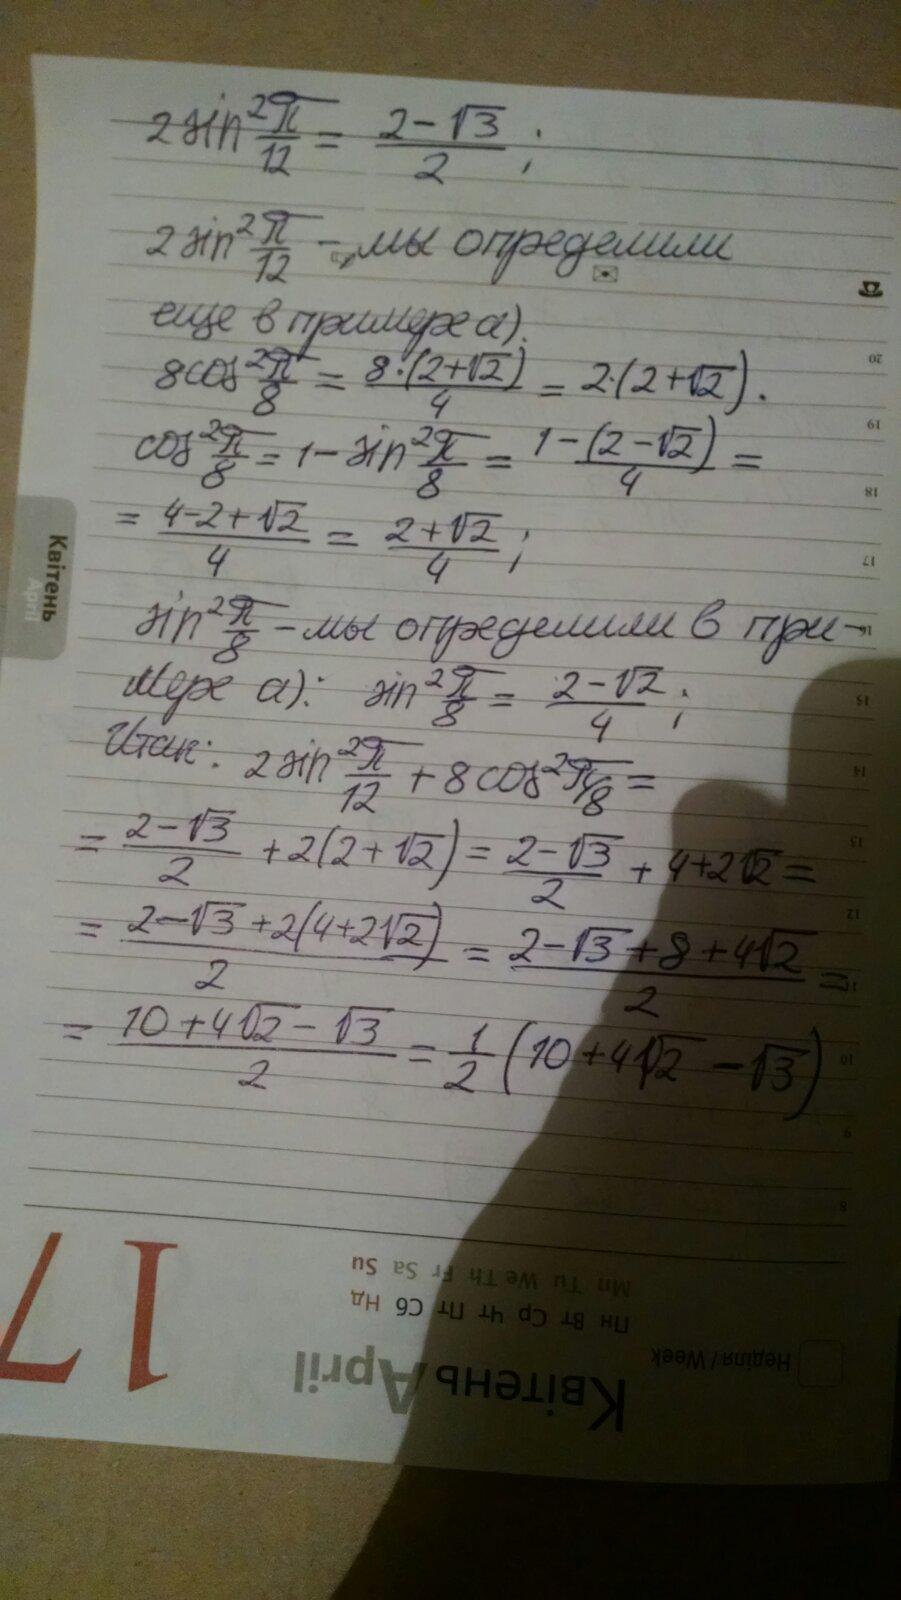 2 sin² π/12 = (2-√3)/2 ;
2 sin² π/12 - мы определили
еще в примере а).
8cos² π/8 = 8·(2+√2)/4 = 2·(2+√2).
cos² π/8 = 1 - sin² π/8 = 1-(2-√2)/4 =
= (4-2+√2)/4 = (2+√2)/4 ;
sin² π/8 - мы определили в при-
мере а): sin² π/8 = (2-√2)/4 ;
Итак: 2 sin² π/12 + 8 cos² π/8 =
= (2-√3)/2 + 2(2+√2) = (2-√3)/2 + 4+2√2 =
= (2-√3+2(4+2√2))/2 = (2-√3+8+4√2)/2 =
= (10+4√2-√3)/2 = 1/2 (10+4√2-√3)
Квітень
April
20
19
18
17
16
15
14
13
12
11
10
9
8
17
Mn Tu We Th Fr Sa Su
Пн Вт Ср Чт Пт Сб Нд
Неділя / Week
Квітень April